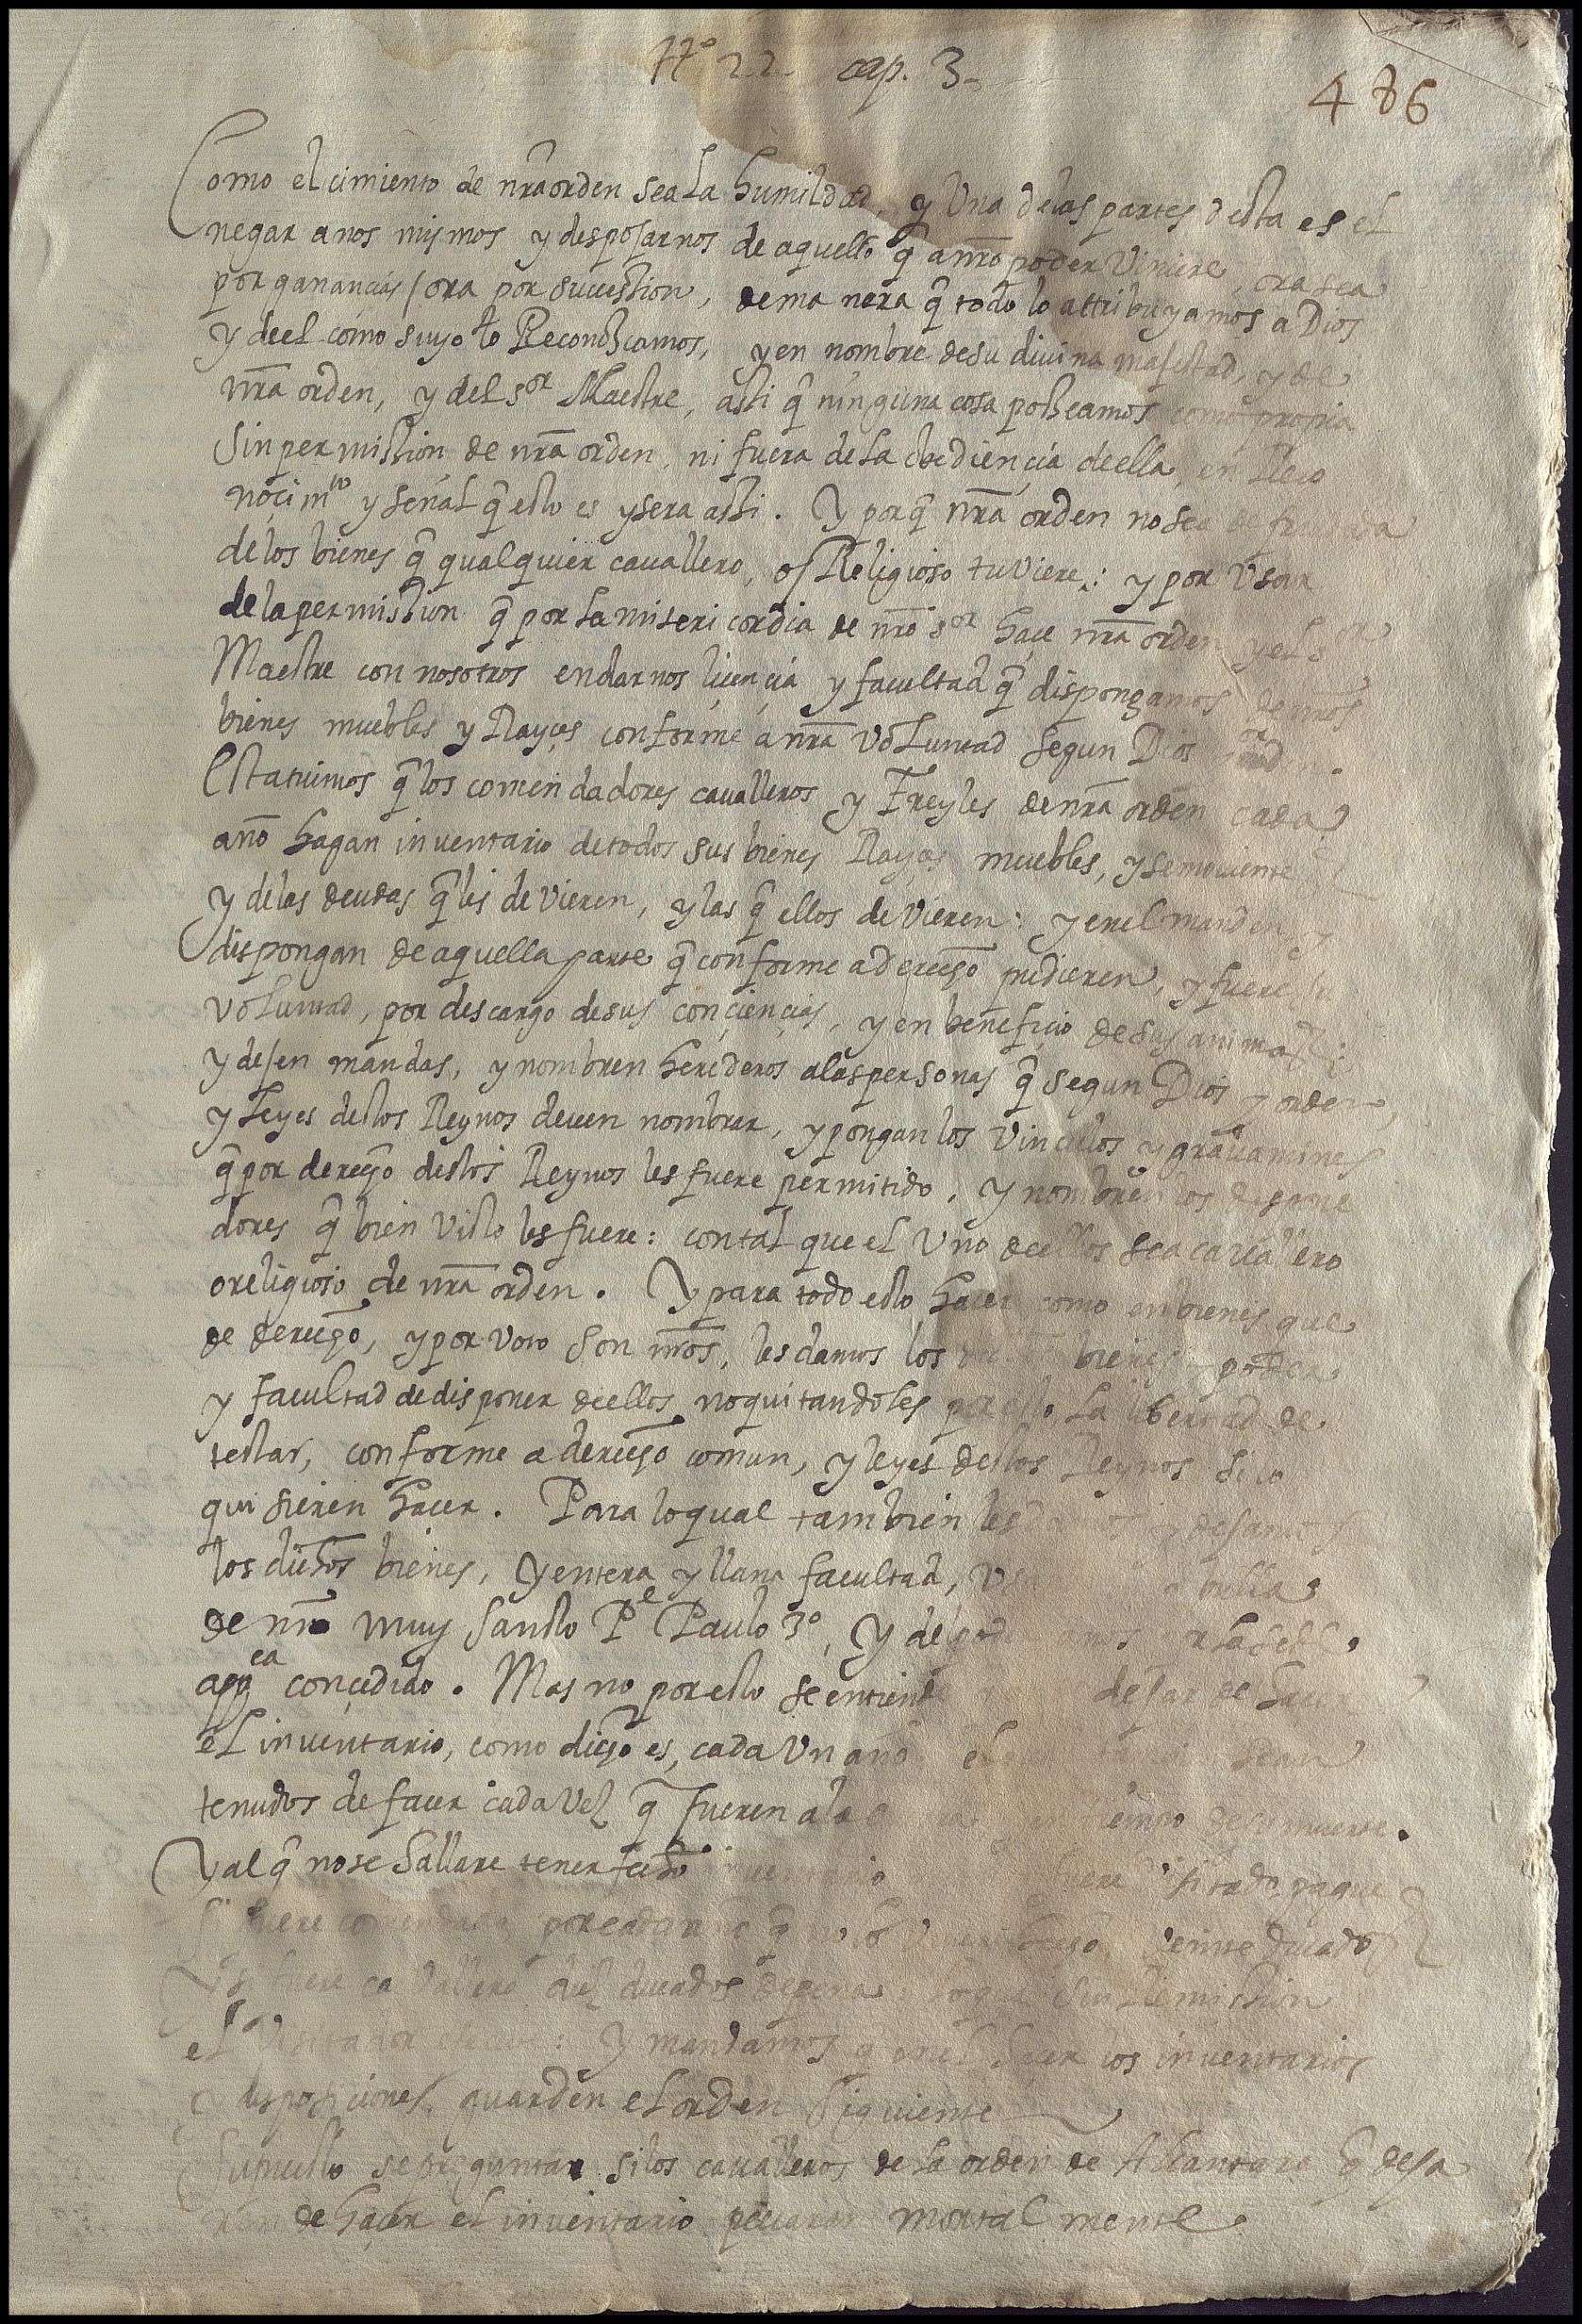 tt.º 22 cap. 3.
486
Como el cimiento de nr̃a orden sea La humildad, y Una delas partes desta es el
negar a nos mismos y desposarnos de aquello q̃ a nr̃o poder Viniere, ora sea
por ganancias / ora por succession, de manera q̃ todo lo attribuyamos a Dios
y deel como suyo lo Reconozcamos, y en nombre de su divina magestad, y de
nr̃a orden, y del sor Maestre, assi q̃ ninguna cosa posseamos como propia
Sin permission de nr̃a orden, ni fuera de La obediençia deella, en Reco
noçimto y señal q̃ esto es y sera assi. Y por q̃ nr̃a orden no sea
de los bienes q̃ qualquier cauallero, o / Religioso tuViere: y por Usar
de la permission q̃ por La misericordia de nr̃o sor haçe nr̃a orden y el S
Maestre con nosotros en darnos liçençia y facultad q̃ dispongamos de nr̃os
bienes muebles y Rayçes conforme a nr̃a Voluntad segun Dios y orden.
Estatuimos q̃ los comendadores caualleros y Freyles de nr̃a orden cada
año hagan inuentario de todos sus bienes Rayçes muebles, y semouientes
y delas deudas q̃ les deVieren, y las q̃ ellos deVieren: y en el manden, y
dispongan de aquella parte q̃ conforme a derecho pudieren, y fuere su
Voluntad, por descargo de sus conçiençias, y en benefiçio de sus animas:
y dejen mandas, y nombren herederos a las personas q̃ segun Dios y orden,
y Leyes destos Reynos deuen nombrar, y pongan los Vinculos y grauamines
q̃ por derecho destos Reynos les fuere permitido, y nombren los
dores q̃ bien Visto les fuere: con tal que el Uno deellos sea cauallero
o religioso de nr̃a orden. Y para todo esto hacer como en bienes que
de derecho, y por voto son nr̃os, les damos los bienes y poder
y facultad de disponer deellos no quitandoles por esto La libertad de
testar, conforme a derecho comun, y leyes destos Reynos si lo
quisieren hacer. Para lo qual tambien les dejamos
los dichos bienes, y entera y llana facultad, bulla
de nr̃o muy Sancto Pe Paulo 3º, y del poder a La sede
appca conçedido. Mas no por esto se entienda dejar de hacer
el inuentario, como dicho es, cada Un año sean
tenudos de facer cada Vez q̃ fueren a la tiempo de su muerte.
Y al q̃ no se hallare tener fecho inuentario Visitado, pague
Si fuere comendador por cada año q̃ no hecho Veinte ducados
Y si fuere caVallero diez ducados de pena lo qual sin Remission
el Visitador execute: y mandamos q̃ en el hacer los inuentarios
y disposiciones, guarden el orden siguiente
Supuesto se pregunta si los caualleros de La orden de Alcantara q̃ deja
de haçer el inuentario peccaran mortalmente